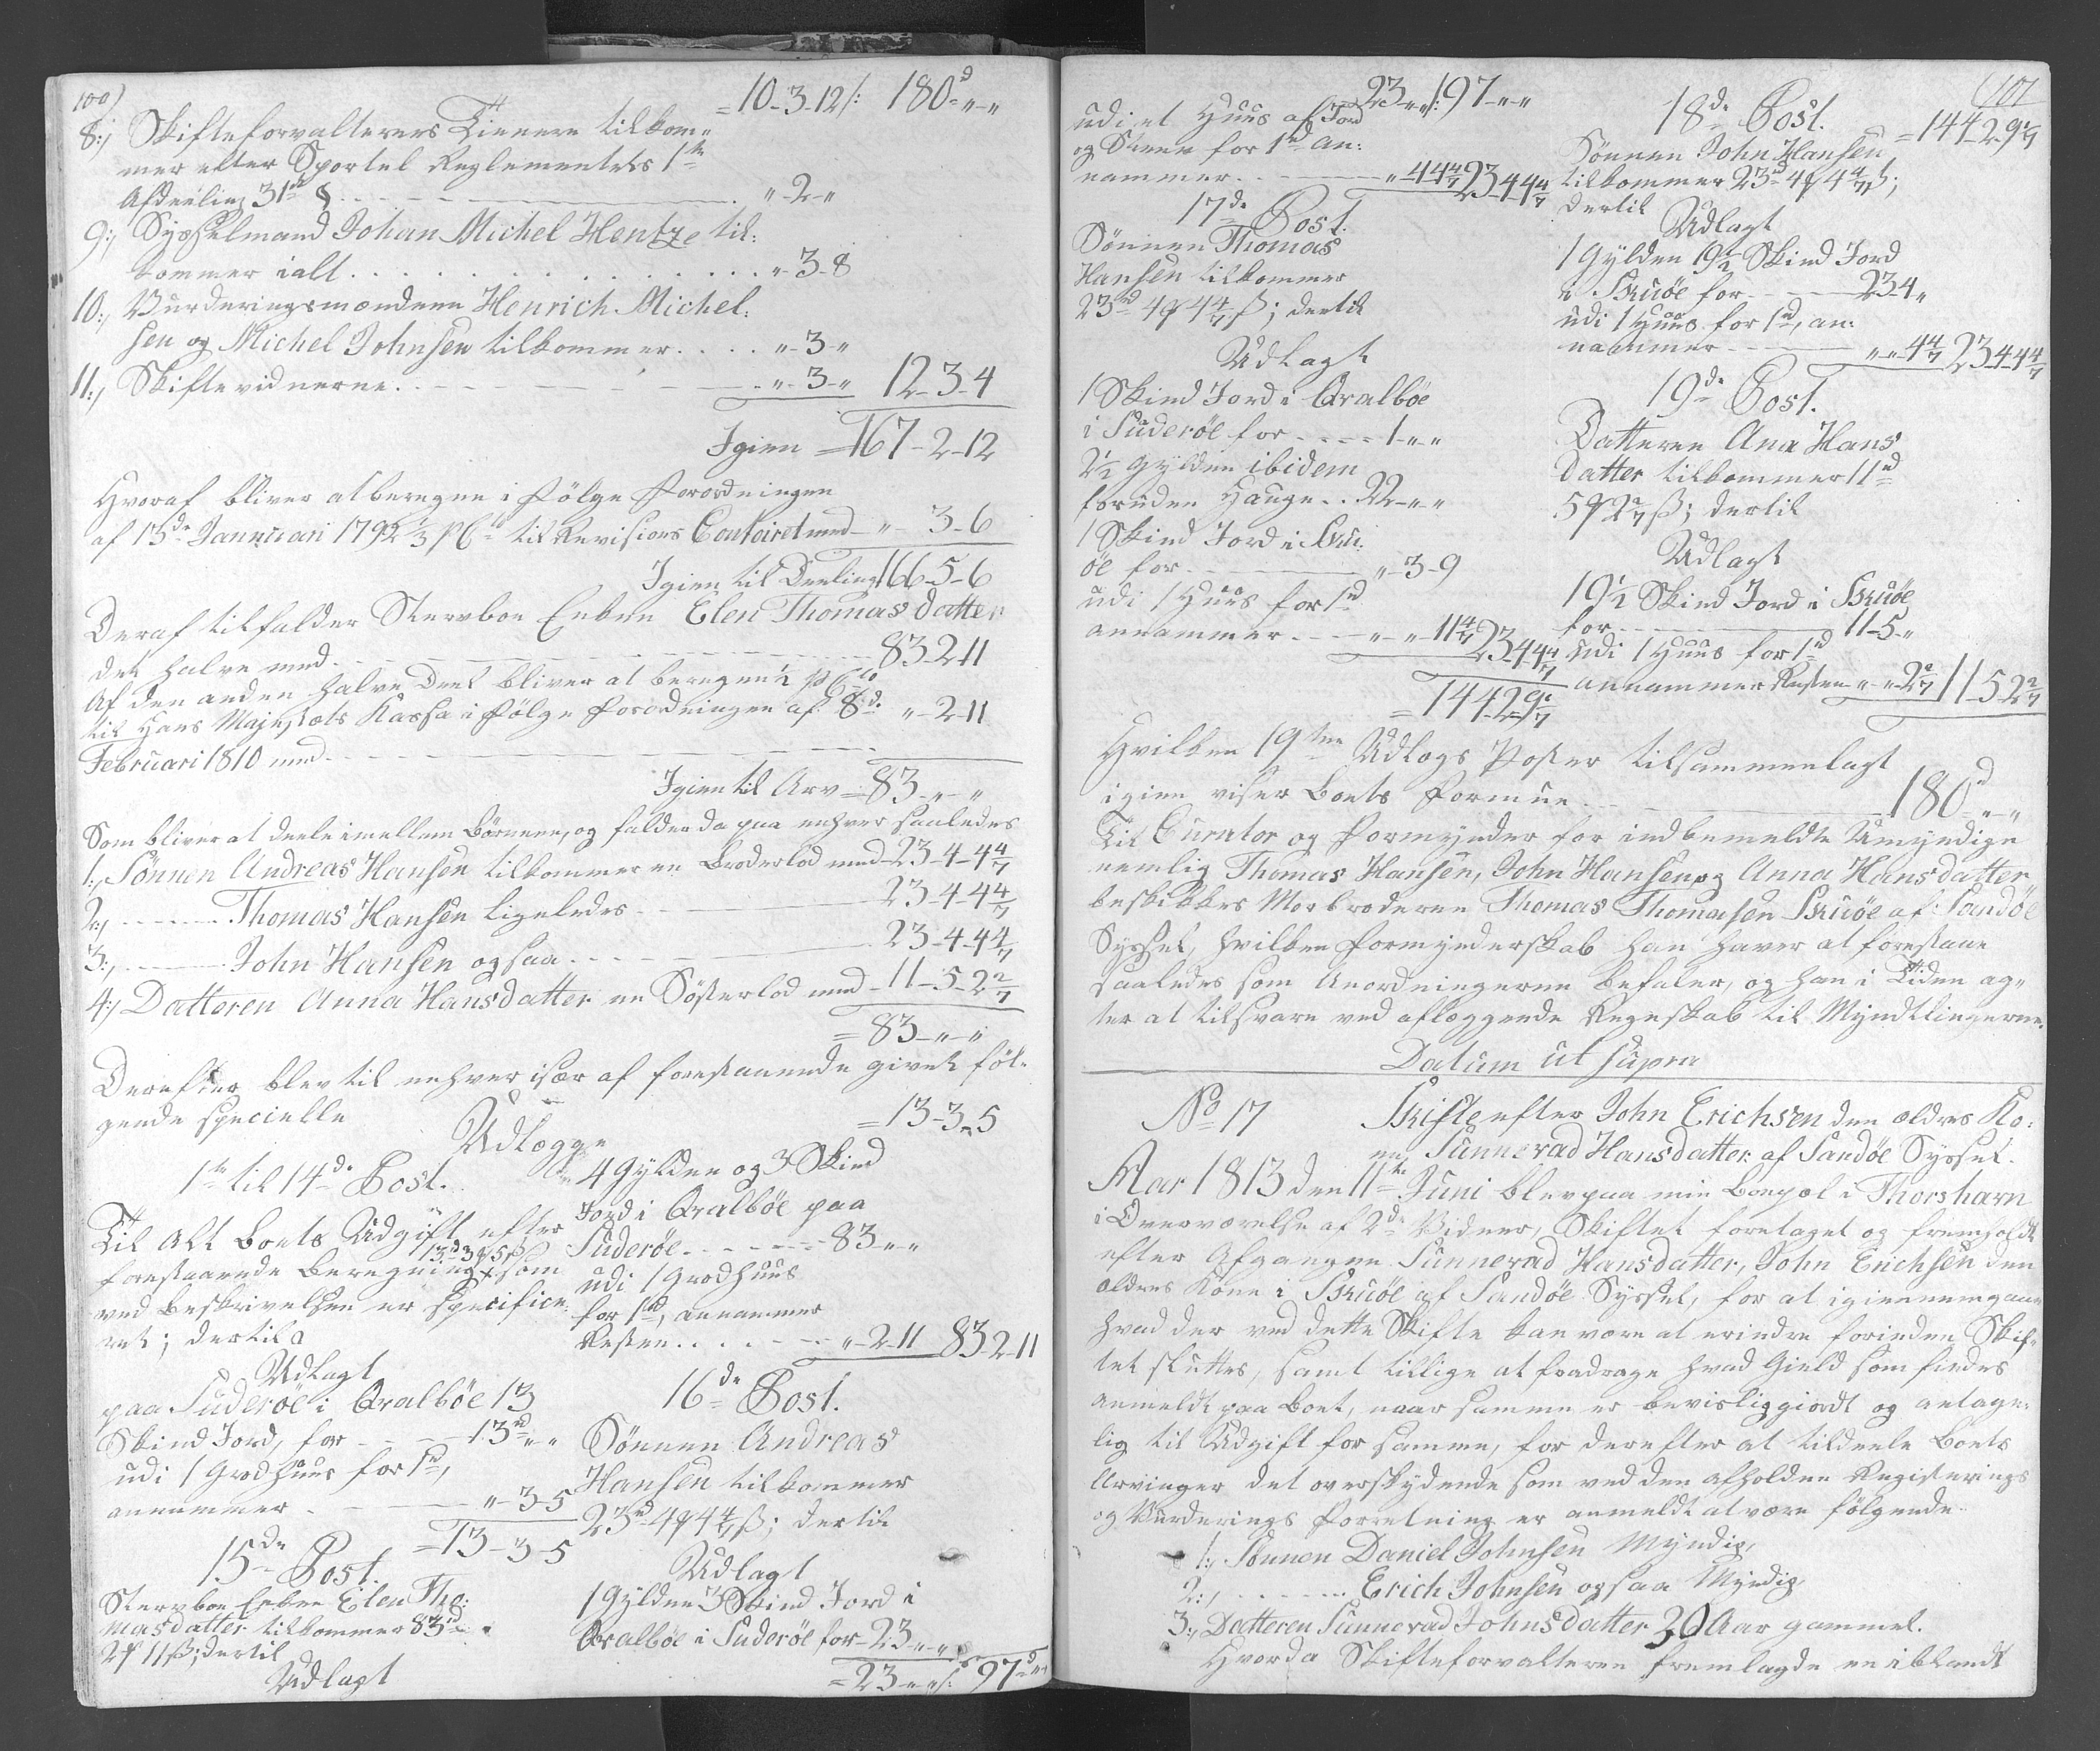 100)
= 10-3-12 /: 180d „-„
8:, Skifteforvalterens Tienere tilkom„
mer efter Sportel Reglementets 1te
Afdeeling 31te § . . . „-2-„
9:, Sysselmand Johan Michel Hentze til:
kommer ialt . . . „-3-8
10:, Vurderingsmændene Henrich Michel:
sen og Michel Johnsen tilkommer . . . „-3-„
11:, Skiftevidnerne . . . „-3-„ 12-3-4
Igien = 167-2-12
Hvoraf bliver at beregne i følge Forordningen
af 13de Januari 1792 1/3 pCto til Revisions Contoiret med - „-3-6
Igien til Deeling 166-5-6
Deraf tilfalder Stervboe Enken Elen Thomasdatter
det halve med . . . 83-2-11
Af den anden halve Deel bliver at beregne 1/2 pCto
til Hans Majestæts Kassa i følge Forordningen af 8de „-2-11
Februari 1810 med
Igien til Arv = 83-„-„
Som bliver at deele imellem Börnene, og falder da paa enhver saaledes
1:, Sönnen Andreas Hansen tilkommer en Broderlod med 23-4-4 4/7
2:, ——— Thomas Hansen ligeledes 23-4-4 4/7
3:, ——— John Hansen ogsaa 23-4-4 4/7
4:, Datteren Anna Hansdatter en Sösterlod med 11-5-2 2/7
= 83-„-„
Derefter blev til enhver især af forestaaende givet föl„
gende specielle
Udlægge
1te til 14de Post.
Til Alt Boets Udgift efter
13d 3 5ß
forestaaende Beregning som
ved Beskrivelsen er specifice:
ret; dertil
Udlagt
paa Suderöe i Qvalböe 13
Skind Jord, for 13d „„
udi 1 Grodhuus for 1d,
annammer „-3-5
= 13-3-5
15de Post.
Stervboe Enken Elen Tho:
masdatter tilkommer 83d
2 11ß; dertil
Udlagt
= 13-3-5
4 Gylden og 3 Skind
Jord i Qvalböe paa
Suderöe . . . 83-„-„
udi 1 Grodhuus
for 1d, annammer
Resten . . . „-2-11 83-2-11
16de Post.
Sönnen Andreas
Hansen tilkommer
23d 4 4 4/7 ß; dertil
Udlagt
1 Gylden 3 Skind Jord i
Qvalböe i Suderöe for 23-„-„
= 23-„-„ /: 97d „-„
23-„-„ /: 97-„-„
udi et Huus af Jord
og Steen for 1d an:
nammer „ 4 4 4/7 23-4-4 4/7
17de Post.
Sönnen Thomas
Hansen tilkommer
23d 4 4 4/7 ß; dertil
Udlagt
1 Skind Jord i Qvalböe
i Suderöe for . . . 1-„-„
2 1/2 Gylden ibidem
foruden Hauge . . 22-„-„
1 Skind Jord i Sku:
öe for „-3-9
udi 1 Huus for 1d
annammer „-„-11 4/7 23-4-4 4/7
= 144-2-9 1/7
107
18de Post. = 144-2-9 1/7
Sönnen John Hansen
tilkommer 23d 4 4 4/7 ß;
dertil
Udlagt
1 Gylden 19 1/2 Skind Jord
i Skuöe for 23-4-„
udi 1 Huus for 1d, an:
nammer „-„-4 4/7 23-4-4 4/7
19de Post.
Datteren Ana Hans
datter tilkommer 11d
5 2 2/7 ß; dertil
Udlagt
19 1/2 Skind Jord i Skuöe
for 11-5-„
udi 1 Huus for 1d
annammer Resten „-„-2 2/7 11-5-2 2/7
Hvilken 19ten Udlægs Poster tilsammenlagt
igien viser Boets Formue 180d-„-„
Til Curator og Formynder for indbemeldte Umyndige
nemlig Thomas Hansen, John Hansen og Anna Hansdatter
beskikkes Morbroderen Thomas Thomasen Skuöe af Sandöe
Syssel, hvilken Formynderskab han haver at forestaae
saaledes som Anordningerne befaler, og han i Tiden ag„
ter at tilsvare ved aflæggende Regnskab til Myndtlingerne.
Datum ut supra
No 17 Skifte efter John Erichsen den ældres Ko:
ne, Sunnevad Hansdatter af Sandöe Syssel.
Aar 1813 den 11te Juni blev paa min Bopæl i Thorshavn
i Overværelse af 2de Vidner, Skiftet foretaget og fremholdt
efter Afgangne Sunnevad Hansdatter, John Erichsen den
ældres Kone i Skuöe af Sandöe Syssel, for at igiennemgaae
hvad der ved dette Skifte kan være at erindre forinden Skif„
tet sluttes, samt tillige at fradrage hvad Gield som findes
anmeldt paa Boet, naar samme er bevisliggiordt og antage:
lig til Udgift for samme, for derefter at tildeele Boets
Arvinger det overskydende som ved den afholdne Registerings
og Vurderings Forretning er anmeldt at være fölgende
1:, Sönnen Daniel Johnsen Myndig,
2:, ——— Erich Johnsen ogsaa Myndig,
3:, Datteren Sunnevad Johnsdatter 30 Aar gammel.
Hvorda Skifteforvalteren fremlagde en iblandt